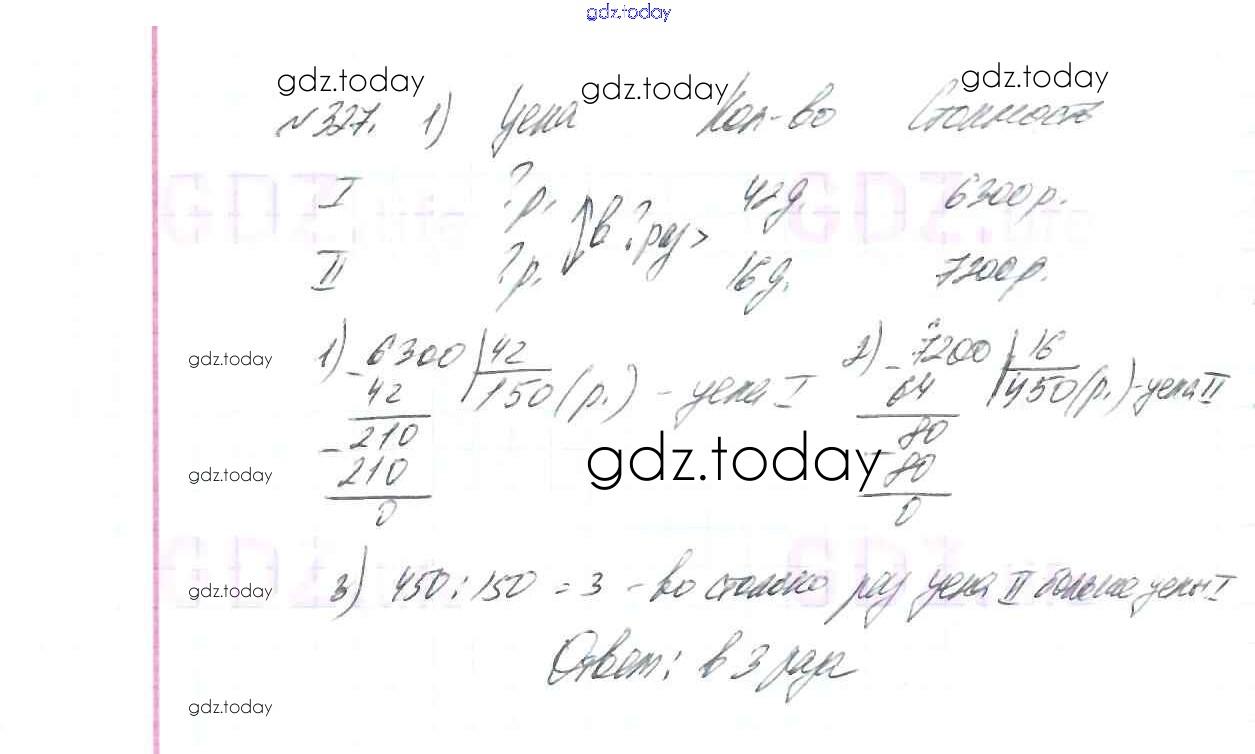 gdz.today
gdz.today gdz.today gdz.today
№327. 1) Цена Кол-во Стоимость
I ?р. 42д. 6300р.
в ?раз >
II ?р. 16д. 7200р.
gdz.today
1) 6300 | 42 2) 7200 | 16
- 42 150(р.) - цена I - 64 450(р.) - цена II
- 210 - 80
gdz.today
210 80
gdz.today
0 0
3) 450 : 150 = 3 - во столько раз цена II больше цены I
gdz.today
Ответ: в 3 раза
gdz.today
GDZ.life GDZ.life
GDZ.life GDZ.life